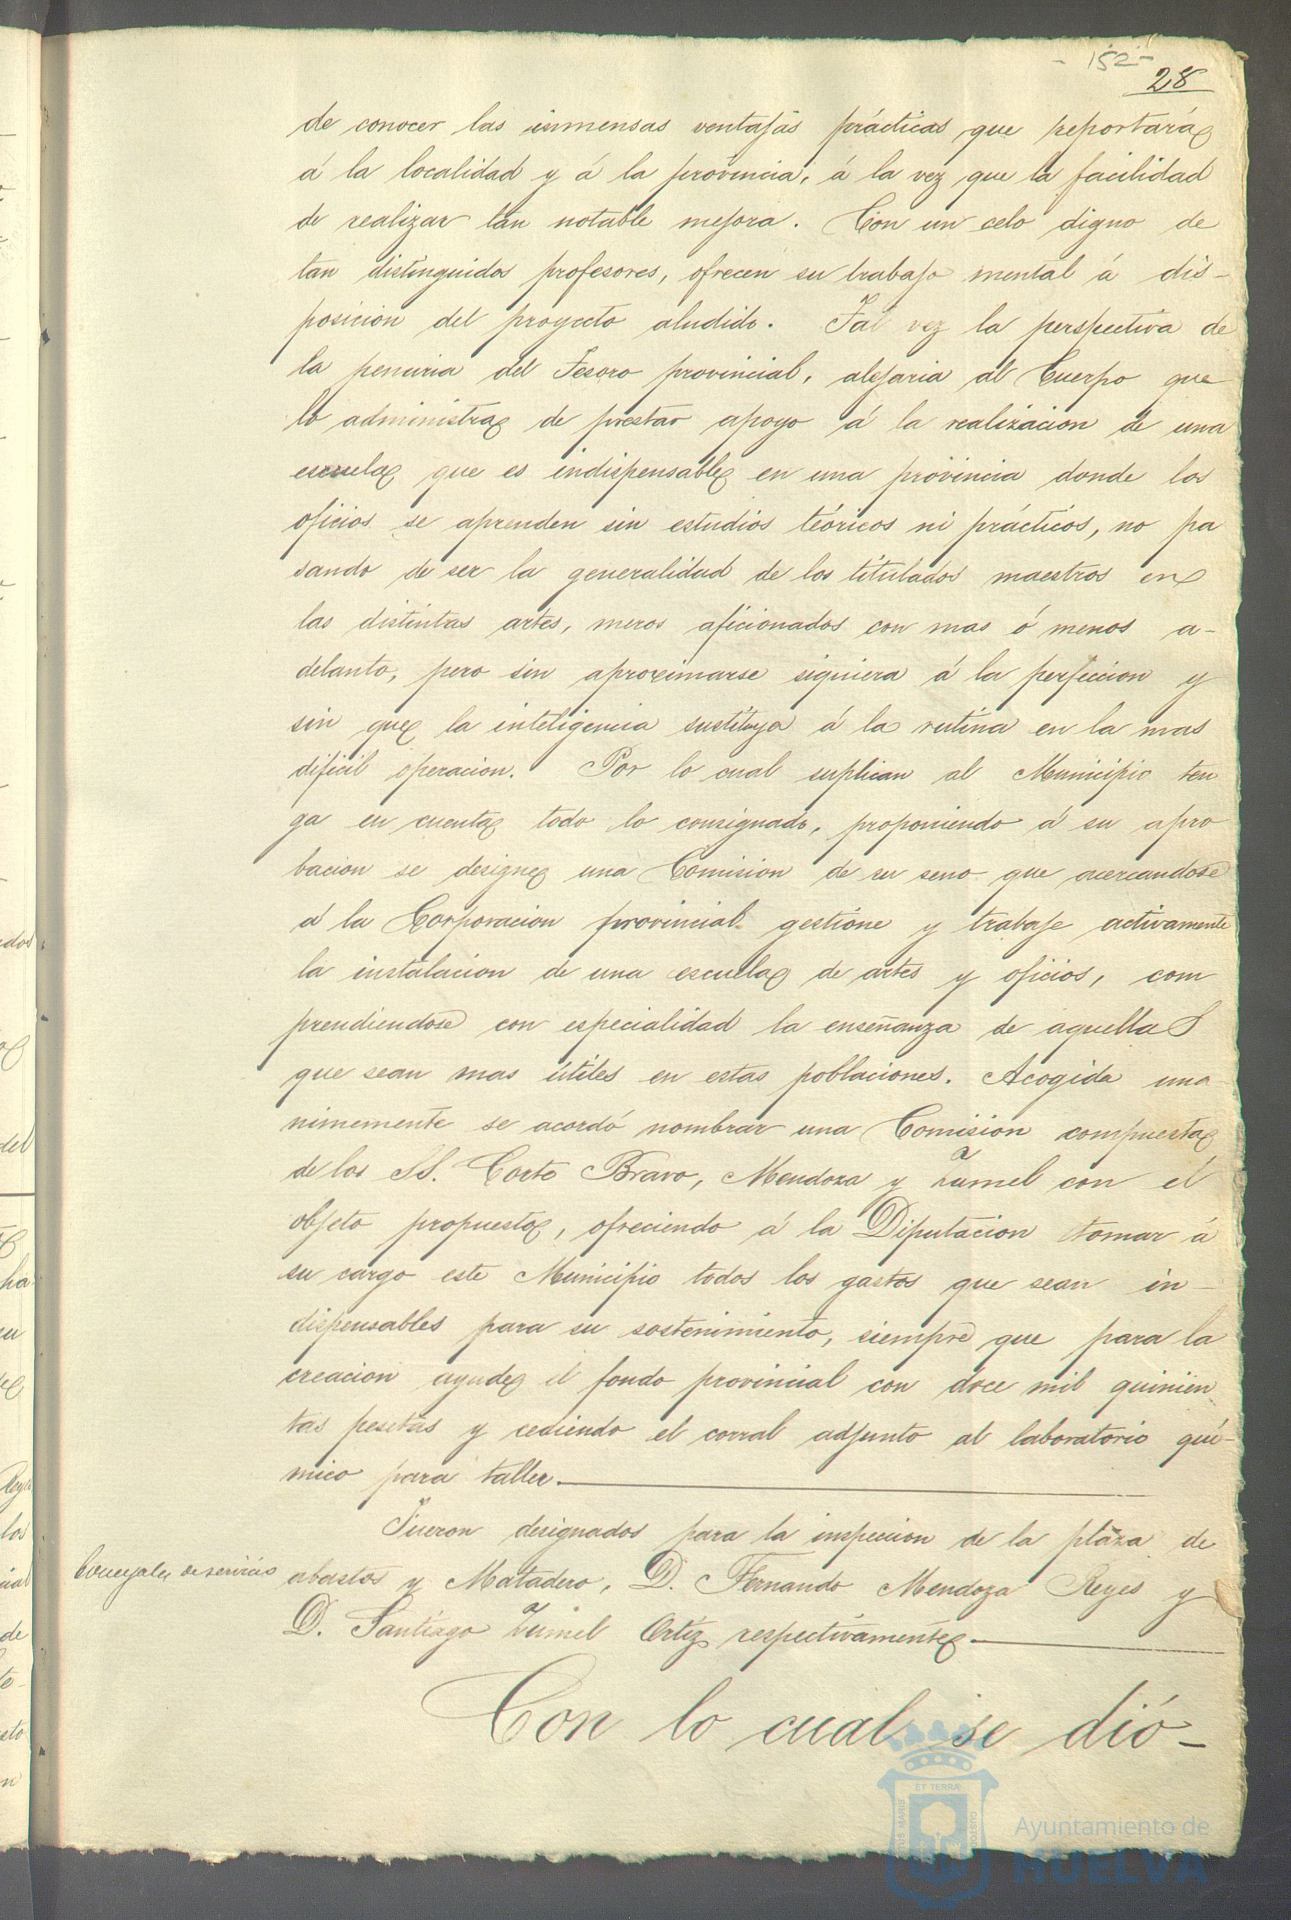 - 152 -
28
de conocer las inmensas ventajas prácticas que reportará
á la localidad y á la provincia, á la vez que la facilidad
de realizar tan notable mejora. Con un celo digno de
tan distinguidos profesores, ofrecen su trabajo mental á dis-
posicion del proyecto aludido. Tal vez la perspectiva de
la penuria del Tesoro provincial, alejaria al Cuerpo que
lo administra de prestar apoyo á la realizacion de una
escuela que es indispensable en una provincia donde los
oficios se aprenden sin estudios teóricos ni prácticos, no pa
sando de ser la generalidad de los titulados maestros en
las distintas artes, meros aficionados con mas ó menos a-
delanto, pero sin aproximarse siquiera á la perfeccion y
sin que la inteligencia sustituya á la rutina en la mas
dificil operacion. Por lo cual suplican al Municipio ten
ga en cuenta todo lo consignado, proponiendo á su apro
bacion se designe una Comision de su seno que acercandose
á la Corporacion provincial gestione y trabaje activamente
la instalacion de una escuela de artes y oficios, com
prendiendose con especialidad la enseñanza de aquellas
que sean mas útiles en estas poblaciones. Acogida una
nimemente se acordó nombrar una Comision compuesta
de los SS. Corto Bravo, Mendoza y Zumel con el
objeto propuesto, ofreciendo á la Diputacion tomar á
su cargo este Municipio todos los gastos que sean in-
dispensables para su sostenimiento, siempre que para la
creacion ayude el fondo provincial con doce mil quinien
tas pesetas y cediendo el corral adjunto al laboratorio quí-
mico para taller.
Fueron designados para la inspeccion de la plaza de
Concejales de servicio
abastos y Matadero, D. Fernando Mendoza Reyes y
D. Santiago Zumel Ortiz respectivamente.
Con lo cual se dió-
ET TERRÆ
Ayuntamiento de
HUELVA